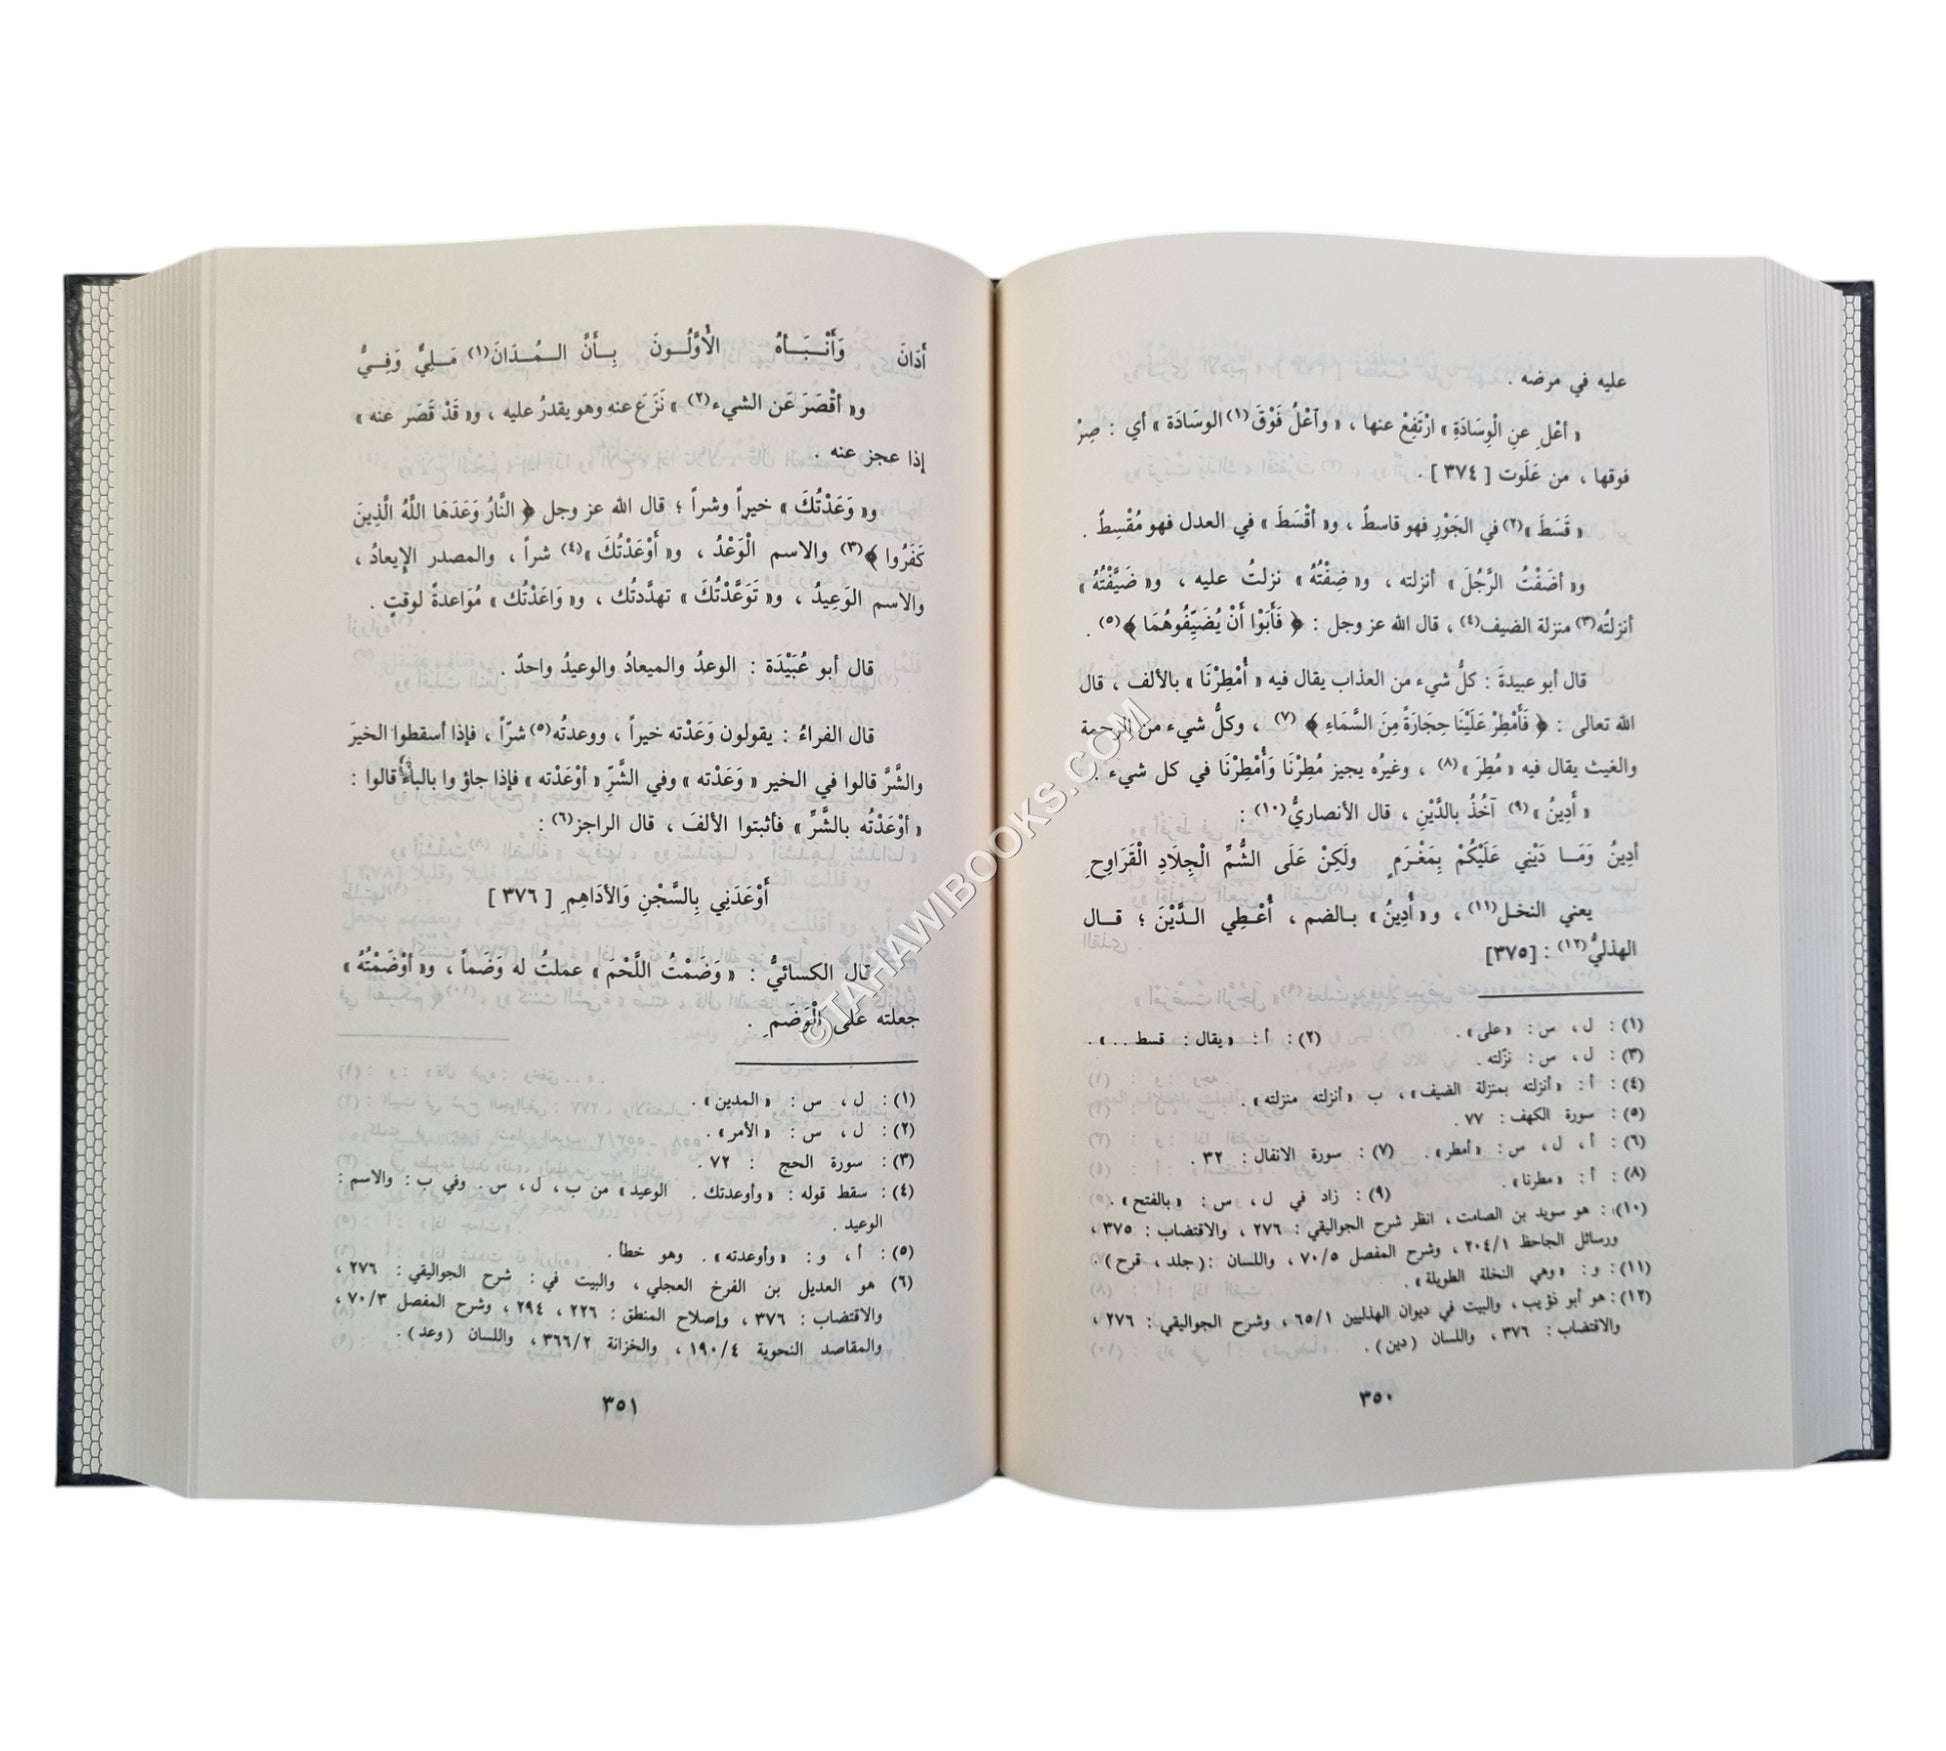 عليه في مرضه .
« أعْلِ عنِ الْوِسَادَةِ » ارْتَفِعْ عنها ، « وآعْلُ فَوْقَ (١) الوسَادَة » أي : صِرْ
فوقها ، من عَلَوت [ ٣٧٤ ] .
« قَسَطَ » (٢) في الجَوْرِ فهو قاسطٌ ، و« أقْسَطَ » في العدل فهو مُقْسِطٌ .
و« أضَفْتُ الرَّجُلَ » أنزلته ، و« ضِفْتُهُ » نزلتُ عليه ، و« ضَيَّفْتُهُ »
أنزلتُه (٣) منزلة الضيف (٤) ، قال الله عز وجل : ﴿ فَأَبَوْا أَنْ يُضَيِّفُوهُمَا ﴾ (٥) .
قال أبو عبيدةَ : كلُّ شيء من العذاب يقال فيه « أُمْطِرْنَا » بالألف ، قال
الله تعالى : ﴿ فَأَمْطِرْ عَلَيْنَا حِجَارَةً مِنَ السَّمَاءِ ﴾ (٧) ، وكلُّ شيء من الرحمة
والغيث يقال فيه « مُطِرَ » (٨) ، وغيرُه يجيز مُطِرْنَا وَأُمْطِرْنَا في كل شيء .
« أَدِينُ » (٩) آخُذُ بالدَّيْنِ ، قال الأنصاريُّ (١٠) :
أدِينُ وَمَا دَيْنِي عَلَيْكُمْ بِمَغْرَمٍ ولَكِنْ عَلَى الشُّمِّ الْجِلَادِ الْقَرَاوِحِ
يعني النخل (١١) ، و« أُدِينُ » بالضم ، أُعْطِي الدَّيْنَ ؛ قال
الهذليُّ (١٢) : [٣٧٥]
(١) : ل ، س : « على » . (٢) : أ : « يقال : قسط .. » .
(٣) : ل ، س : نزّلته .
(٤) : أ : « أنزلته بمنزلة الضيف » ، ب « أنزلته منزلته » .
(٥) : سورة الكهف : ٧٧ .
(٦) : أ ، ل ، س : « أمطر » . (٧) : سورة الانفال : ٣٢ .
(٨) : أ : « مطرنا » . (٩) : زاد في ل ، س : « بالفتح » .
(١٠) : هو سويد بن الصامت ، انظر شرح الجواليقي : ٢٧٦ ، والاقتضاب : ٣٧٥ ،
ورسائل الجاحظ ٢٠٤/١ ، وشرح المفصل ٧٠/٥ ، واللسان : (جلد ، قرح) .
(١١) : و : « وهي النخلة الطويلة » .
(١٢) : هو أبو ذؤيب ، والبيت في ديوان الهذليين ٦٥/١ ، وشرح الجواليقي : ٢٧٦ ،
والاقتضاب : ٣٧٦ ، واللسان (دين) .
٣٥٠
أَدَانَ وَأَنْبَأهُ الْأوَّلُونَ بِأَنَّ الْمُدَانَ (١) مَلِيٌّ وَفِيُّ
و« أقْصَرَ عَن الشيء (٢) » نَزَعَ عنه وهو يقدرُ عليه ، و« قَدْ قَصَر عنه »
إذا عجز عنه .
و« وَعَدْتُكَ » خيراً وشراً ؛ قال الله عز وجل ﴿ النَّارُ وَعَدَهَا اللَّهُ الَّذِينَ
كَفَرُوا ﴾ (٣) والاسم الْوَعْدُ ، و« أَوْعَدْتُكَ » (٤) شراً ، والمصدر الإيعادُ ،
والاسم الوَعِيدُ ، و« تَوَعَّدْتُكَ » تهدَّدتُك ، و« وَاعَدْتُك » مُوَاعدةً لوقتٍ .
قال أبو عُبَيْدَة : الوعدُ والميعادُ والوعيدُ واحدٌ .
قال الفراءُ : يقولون وَعَدْته خيراً ، ووعدتُه (٥) شرّاً ، فإذا أسقطوا الخيرَ
والشَّرَّ قالوا في الخير « وَعَدْته » وفي الشَّرِّ « أوْعَدْته » فإذا جاؤ وا بالباء قالوا :
« أوْعَدْتُه بالشَّرِّ » فأثبتوا الألفَ ، قال الراجز (٦) :
أَوْعَدَنِي بِالسَّجْنِ وَالأدَاهِمِ [ ٣٧٦ ]
قال الكسائيُّ : « وَضَمْتُ اللَّحْمَ » عملتُ له وَضَماً ، و« أوْضَمْتُهُ »
جعلته عَلَى الْوَضَمِ .
(١) : ل ، س : « المدين » .
(٢) : ل ، س : « الأمر » .
(٣) : سورة الحج : ٧٢ .
(٤) : سقط قوله : « وأوعدتك . الوعيد » من ب ، ل ، س . وفي ب : والاسم :
الوعيد .
(٥) : أ ، و : « وأوعدته » . وهو خطأ .
(٦) هو العديل بن الفرخ العجلي ، والبيت في : شرح الجواليقي : ٢٧٦ ،
والاقتضاب : ٣٧٦ ، وإصلاح المنطق : ٢٢٦ ، ٢٩٤ ، وشرح المفصل ٧٠/٣ ،
والمقاصد النحوية ١٩٠/٤ ، والخزانة ٣٦٦/٢ ، واللسان (وعد) .
٣٥١
©TAHAWIBOOKS.COM